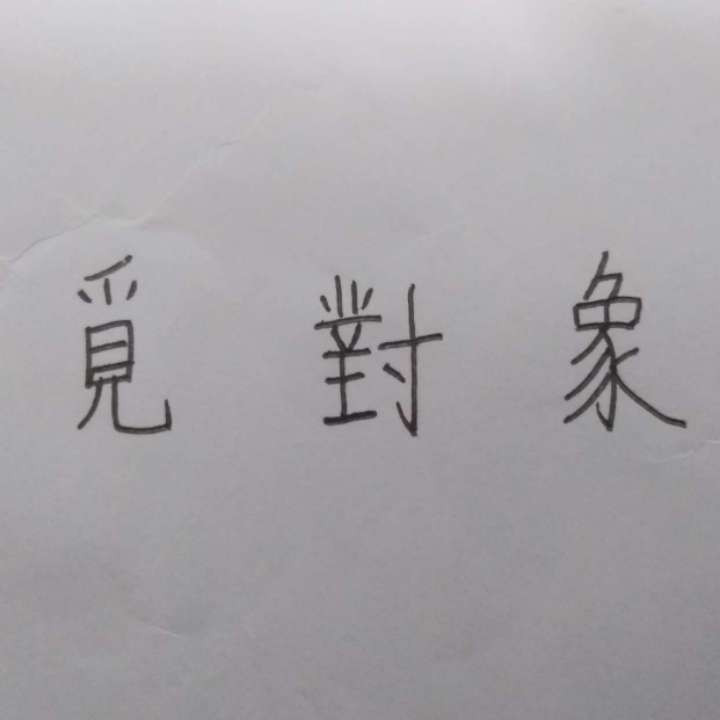 覓對象